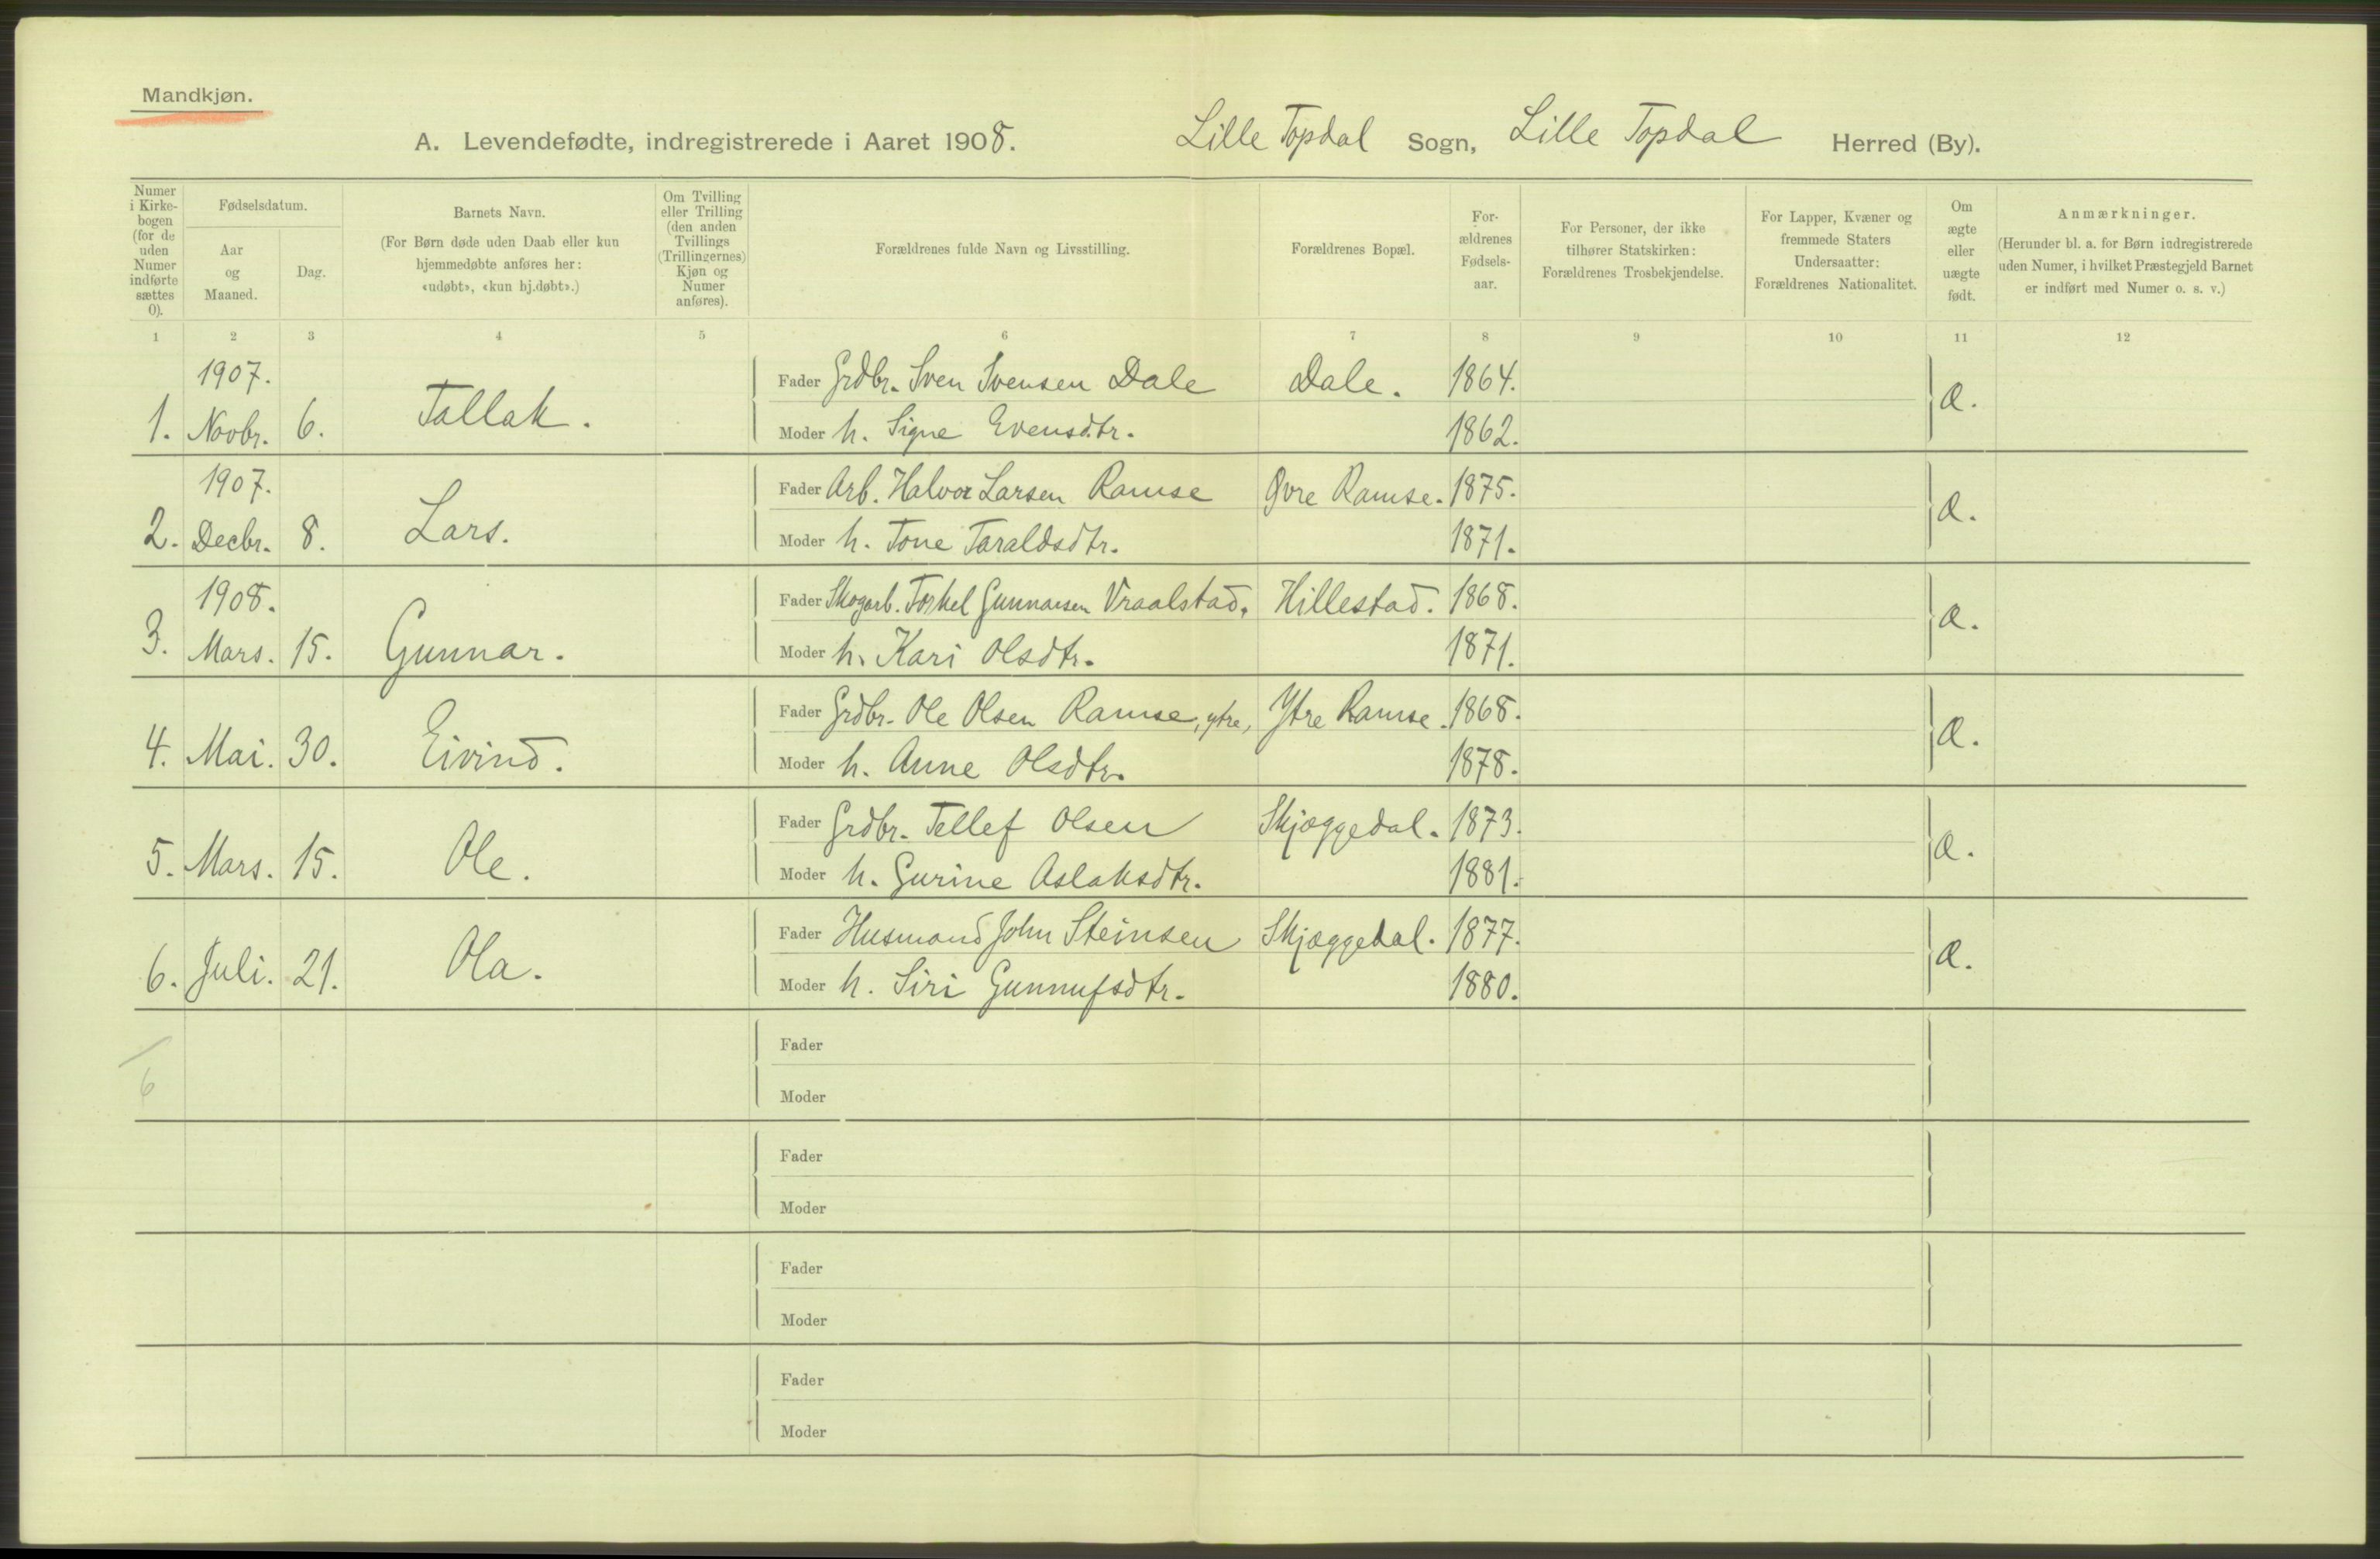 Mandkjøn.
A. Levendefødte, indregistrerede i Aaret 1908. Lille Topdal Sogn, Lille Topdal Herred (By).
Numer i Kirke-bogen (for de uden Numer indførte sættes 0).
Fødselsdatum.
Aar og Maaned.
Dag.
Barnets Navn.
(For Børn døde uden Daab eller kun hjemmedøbte anføres her: «udøbt», «kun hj.døbt».)
Om Tvilling eller Trilling (den anden Tvillings (Trillingernes) Kjøn og Numer anføres).
Forældrenes fulde Navn og Livsstilling.
Forældrenes Bopæl.
For-ældrenes Fødsels-aar.
For Personer, der ikke tilhører Statskirken: Forældrenes Trosbekjendelse.
For Lapper, Kvæner og fremmede Staters Undersaatter: Forældrenes Nationalitet.
Om ægte eller uægte født.
Anmærkninger.
(Herunder bl. a. for Børn indregistrerede uden Numer, i hvilket Præstegjeld Barnet er indført med Numer o. s. v.)
1 2 3 4 5 6 7 8 9 10 11 12
1907.
Fader Grdbr. Sven Svensen Dale Dale. 1864.
1. Novbr. 6. Tallak. æ.
Moder h. Signe Evensdtr. 1862.
1907.
Fader Arb. Halvor Larsen Ramse Øvre Ramse. 1875.
2. Decbr. 8. Lars. æ.
Moder h. Tone Taraldsdtr. 1871.
1908.
Fader Skogarb. Torkel Gunnarsen Vraalstad. Hillestad. 1868.
3. Mars. 15. Gunnar. æ.
Moder h. Kari Olsdtr. 1871.
Fader Grdbr. Ole Olsen Ramse, ytre, Ytre Ramse. 1868.
4. Mai. 30. Eivind. æ.
Moder h. Anne Olsdtr. 1878.
Fader Grdbr. Tellef Olsen Skjæggedal. 1873.
5. Mars. 15. Ole. æ.
Moder h. Gurine Aslaksdtr. 1881.
Fader Husmand John Steinsen Skjæggedal. 1877.
6. Juli. 21. Ola. æ.
Moder h. Siri Gunnufsdtr. 1880.
Fader
6
Moder
Fader
Moder
Fader
Moder
Fader
Moder